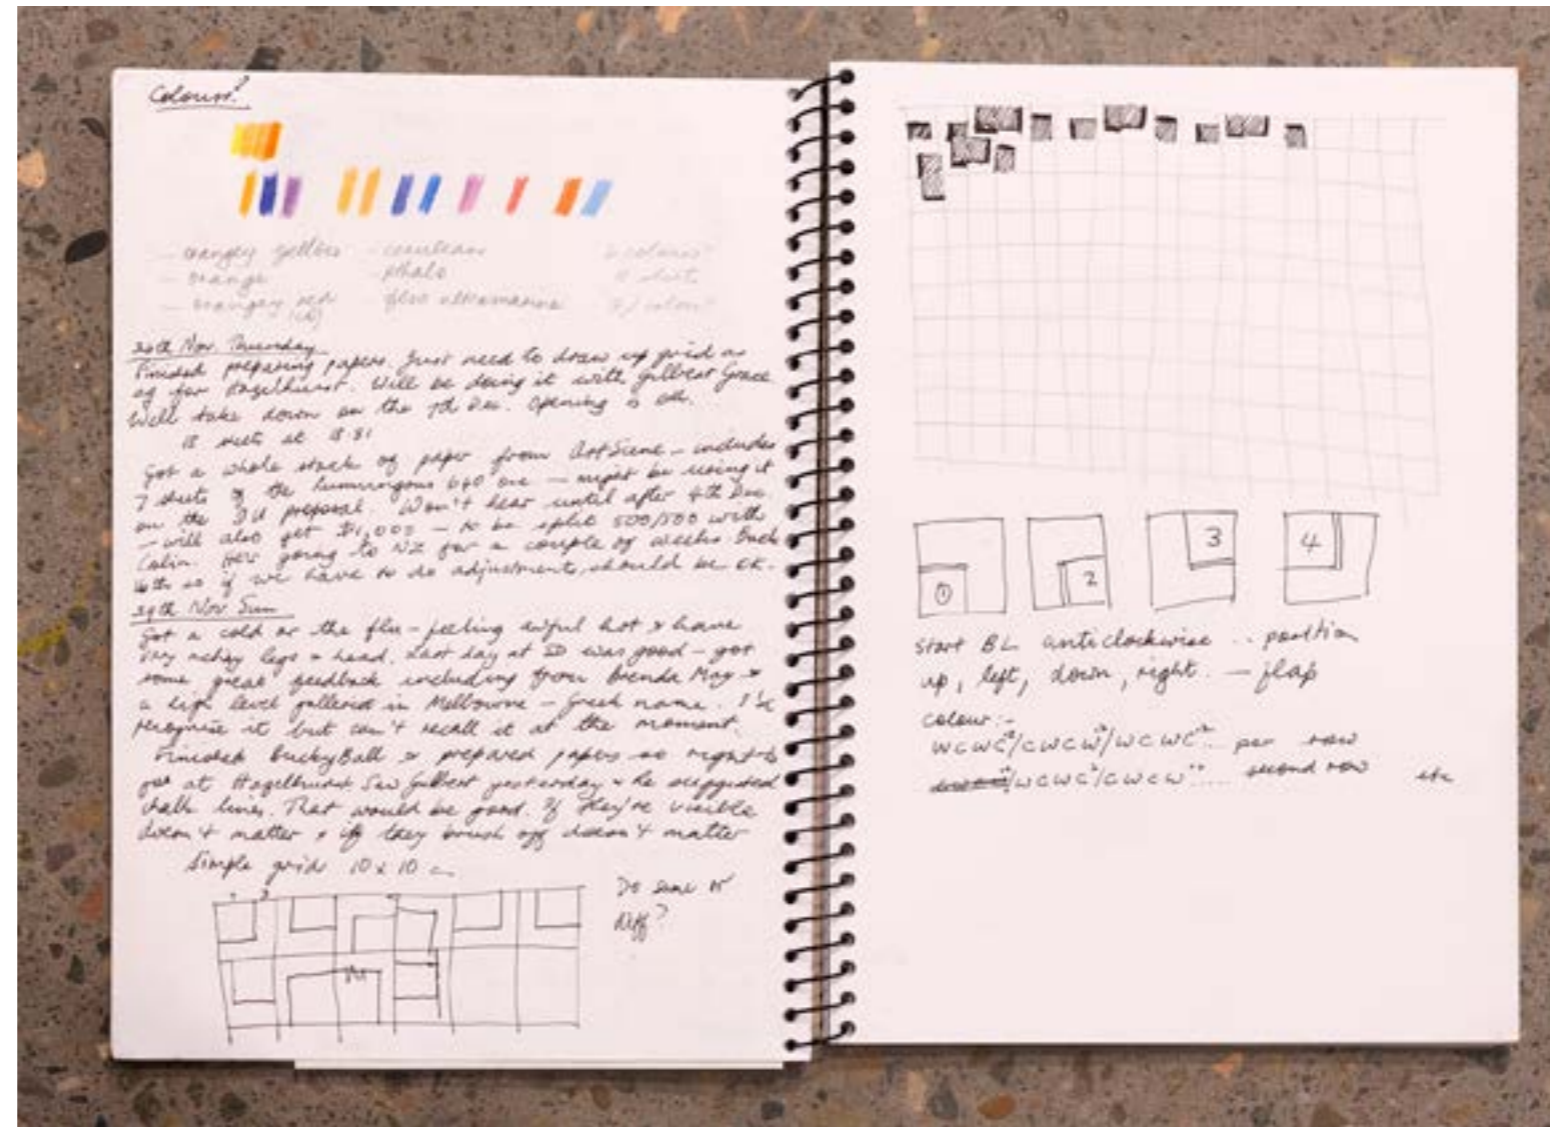 Colours?
- orangey yellow - cerulean 6 colours?
- orange - pthalo sheets
- orangey red - also ultramarine 7/colour?
Nov. Thursday
Finished preparing papers. Just need to draw up grid as
for Hazelhurst. Will be doing it with Gilbert Grace.
Will take down on the 7th Dec. Opening is
18 sheets at
Got a whole stack of paper from ArtScene - includes
7 sheets of the 640 one - might be using it
on the proposal. Won't hear until after 4th Dec.
- will also get $1,000 - to be split 500/500 with
Colin. He's going to NZ for a couple of weeks. Back
so if we have to do adjustments, should be ok.
29th Nov. Sun
Got a cold or the flu - feeling awful hot & have
very achey legs & head. Last day at SD was good - got
some great feedback including from Brenda May &
a high level gallerist in Melbourne - Greek name. I'd
recognise it but can't recall it at the moment.
Finished buckyBall & prepared papers so right to
go at Hazelhurst. Saw Gilbert yesterday & he suggested
chalk lines. That would be good. If they're visible
doesn't matter & if they brush off doesn't matter
Simple grid 10 x 10 cm
Do same or
diff?
1 2 3 4
start BL anticlockwise .. position
up, left, down, right. - flap
colour:-
WCWC/CWCW/WCWC... per row
WCWC/CWCW.... second row etc